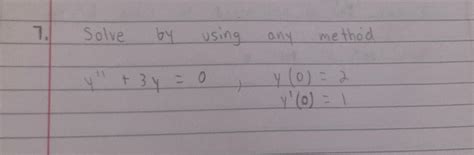 7. Solve by using any method
y'' + 3y = 0 , y(0) = 2
y'(0) = 1